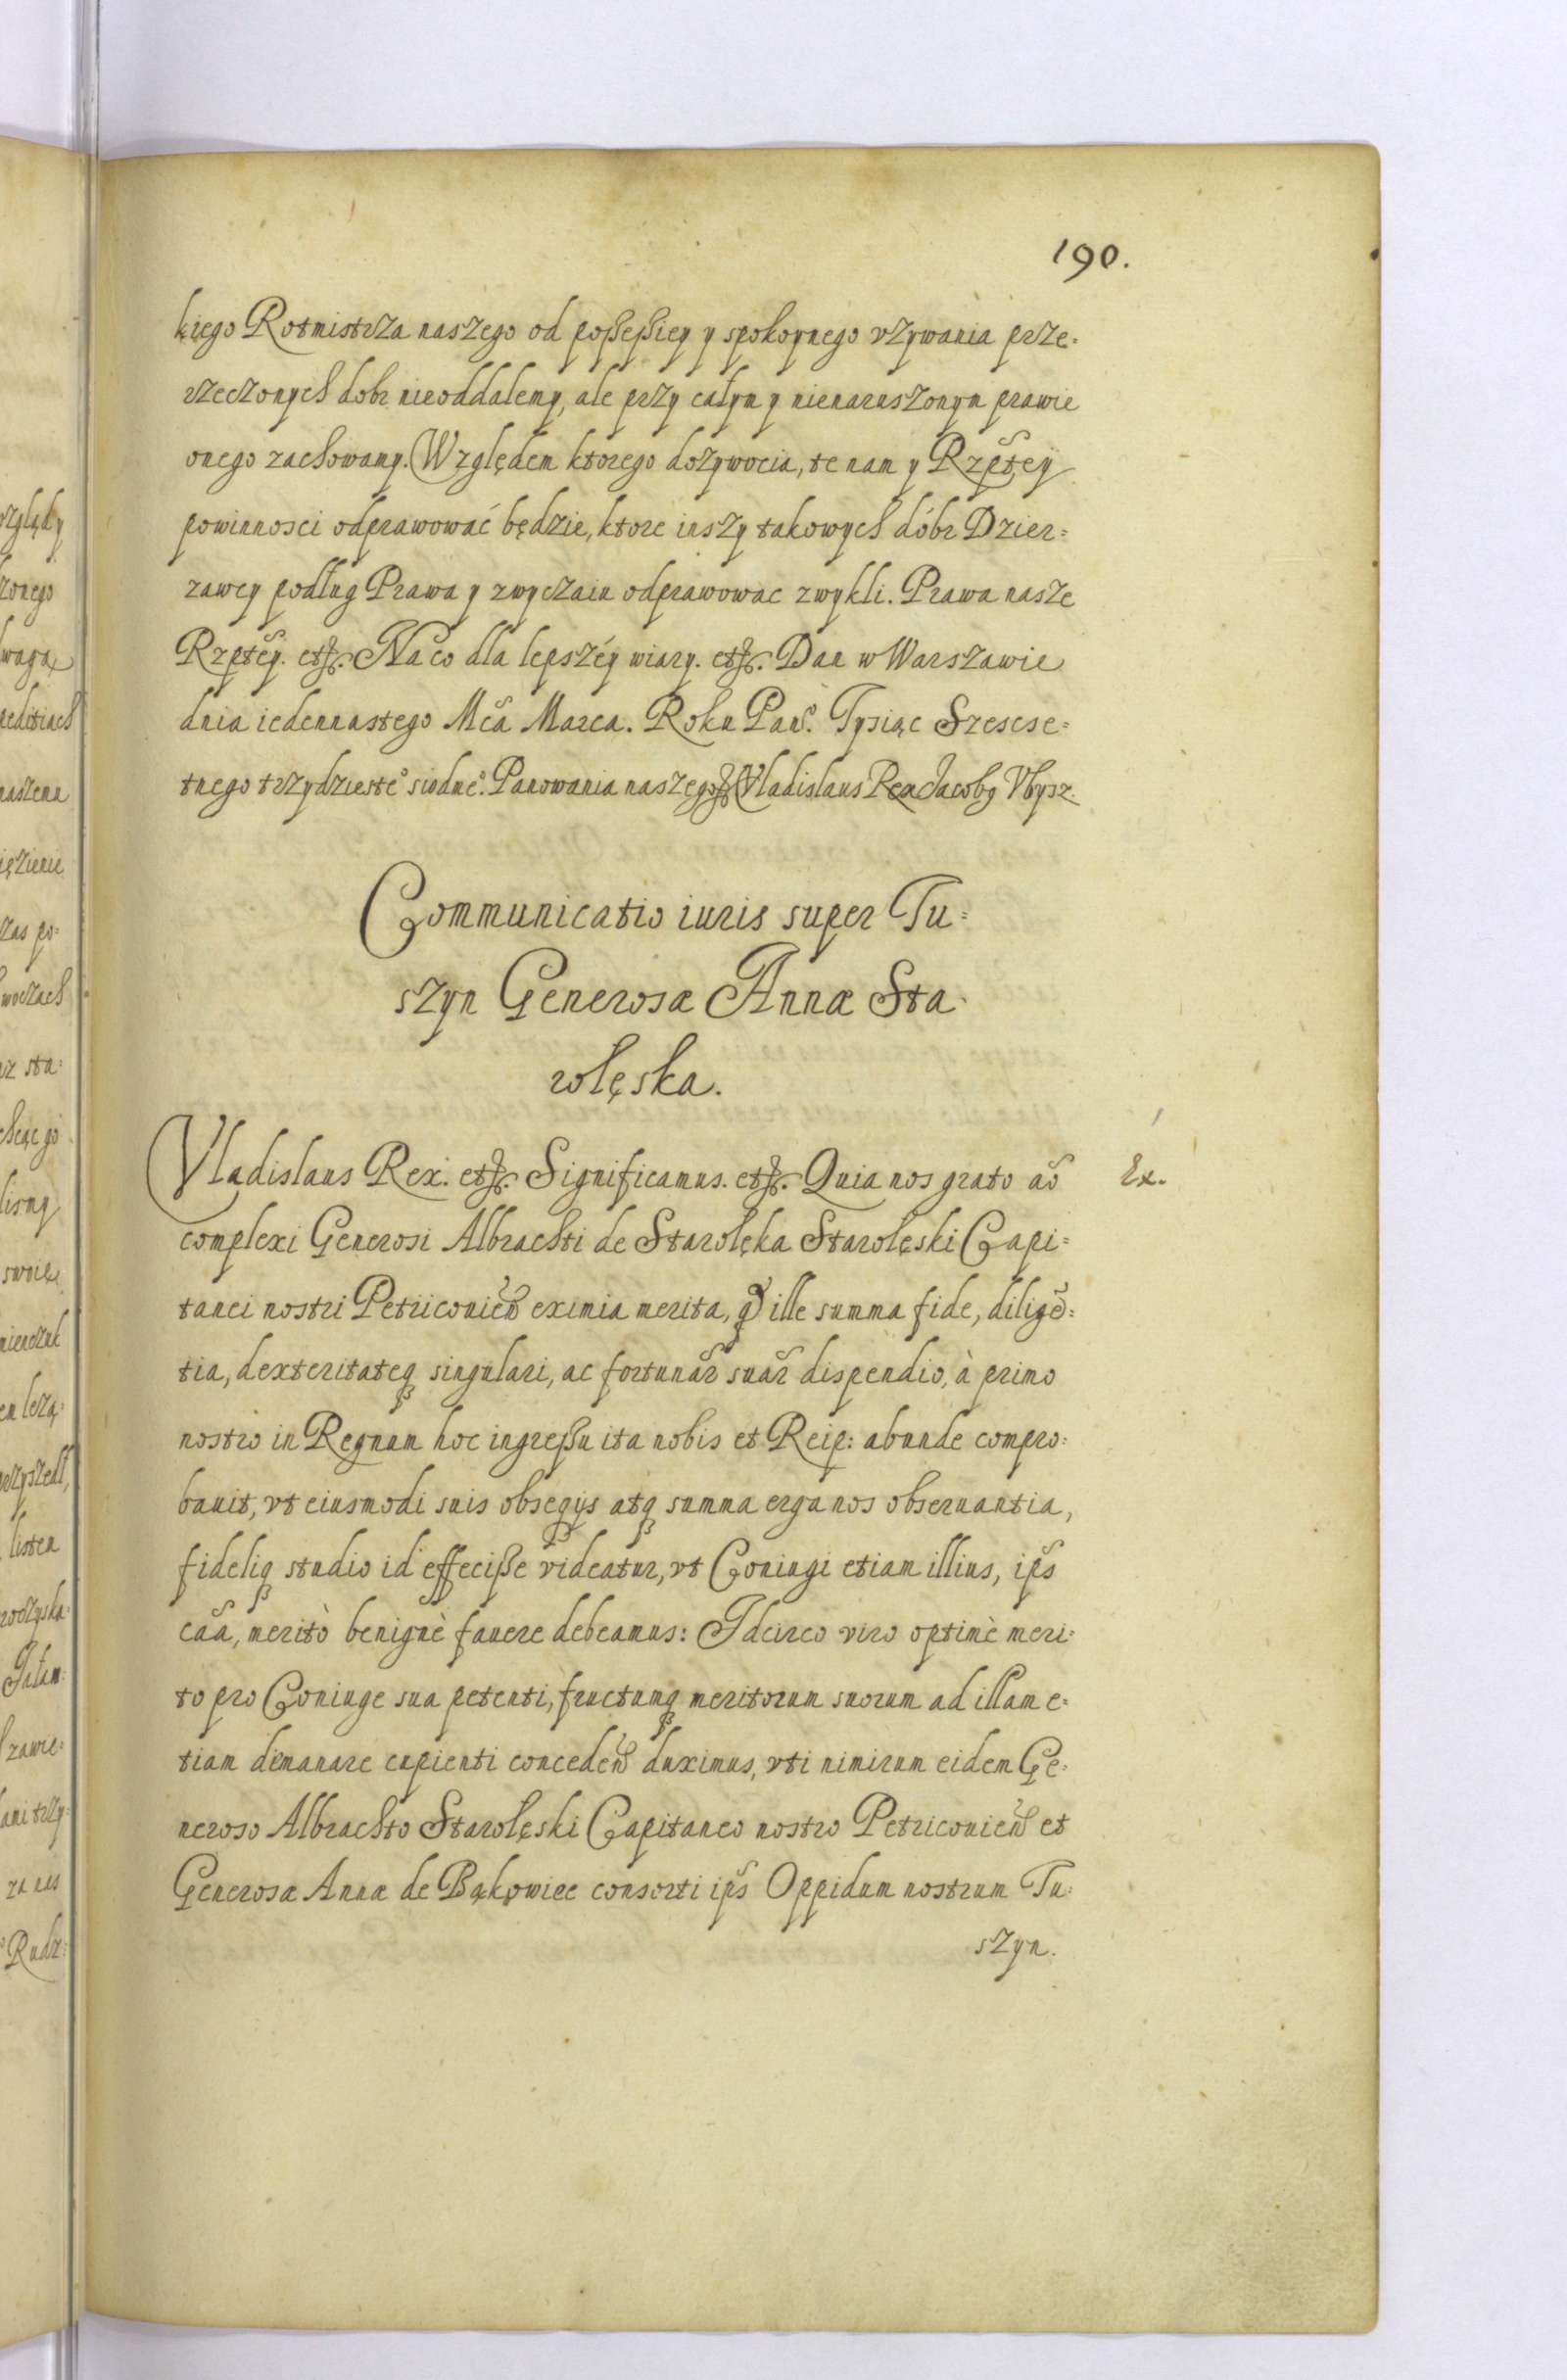 190.
kiego Rotmistrza naszego od poßeßiey y spokoynego vzywania prze=
rzeczonych dobr nieoddalemy, ale przy całym y nienaruszonym prawie
onego zachowamy. Względem ktorego dozywocia, te nam y Rzptey
powinnosci odprawować będzie, ktore inszy takowych dóbr Dzier=
zawcy podług Prawa y zwyczaiu odprawowac zwykli. Prawa nasze
Rzptey. etc. Na co dla lepszéy wiary. etc. Dan w Warszawie
dnia iedennastego Mca Marca. Roku Pans. Tysiąc Szescse=
tnego trzydziesteº siodmeº. Panowania naszego etc Vladislaus Rex Jacobq Vbysz.
Communicatio iuris super Tu=
szyn Generosæ Annæ Sta=
rolęska.
Vladislaus Rex. etc. Significamus. etc. Quia nos grato aõ
Ex.
complexi Generosi Albrachti de Starolęka Starolęski Capi=
tanei nostri Petriconien̄ eximia merita, q̃ ille summa fide, diligē=
tia, dexteritateq singulari, ac fortunar̃ suar̃ dispendio, à primo
nostro in Regnum hoc ingreßu ita nobis et Reip: abunde compro=
bauit, vt eiusmodi suis obseqijs atq summa erga nos obseruantia,
fideliq studio id effeciße videatur, vt Coniugi etiam illius, ips
cãa, meritò benignè fauere debeamus: Idcirco viro optimè meri=
to pro Coniuge sua petenti, fructumq meritorum suorum ad illam e=
tiam dimanare cupienti conceden̄ duximus, vti nimirum eidem Ge=
neroso Albrachto Starolęski Capitaneo nostro Petriconien̄ et
Generosæ Annæ de Bąkowiec consorti ips Oppidum nostrum Tu=
szyn.